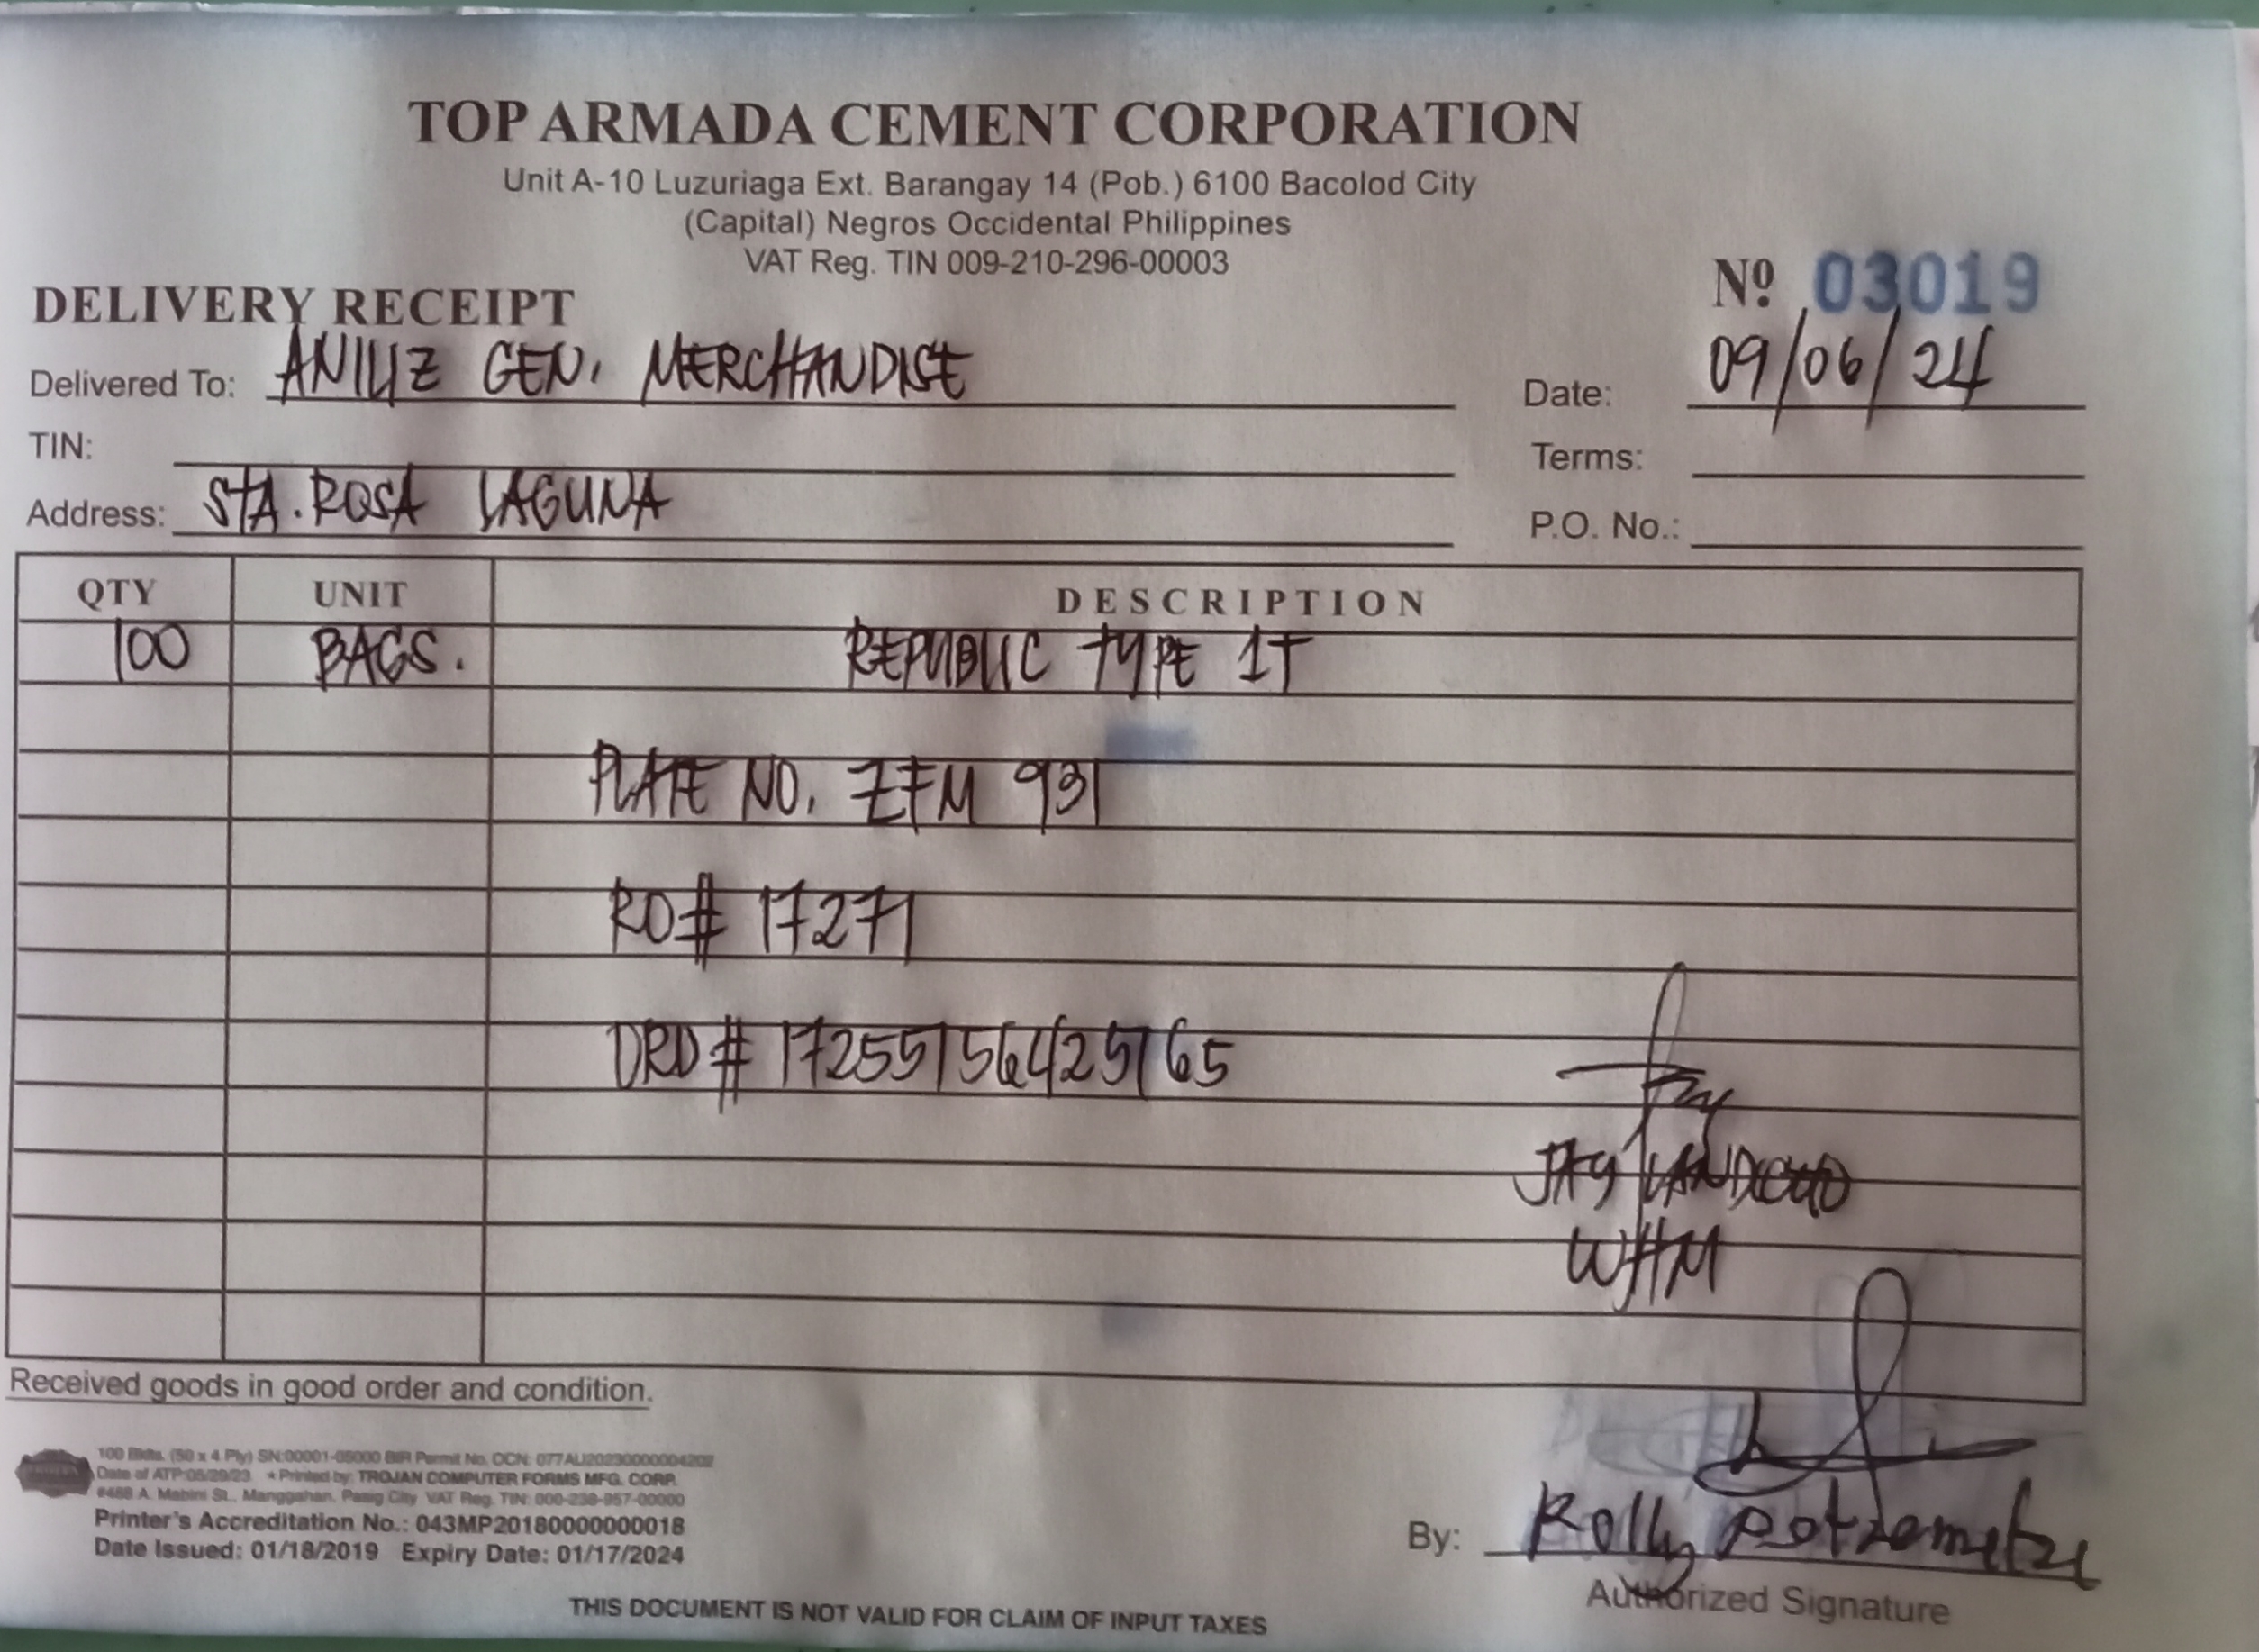 TOP ARMADA CEMENT CORPORATION
Unit A-10 Luzuriaga Ext. Barangay 14 (Pob.) 6100 Bacolod City
(Capital) Negros Occidental Philippines
VAT Reg. TIN 009-210-296-00003
Nº 03019
DELIVERY RECEIPT
Delivered To: ANILIZ GEN. MERCHANDISE
Date: 09/06/24
TIN:
Terms:
Address: STA. ROSA LAGUNA
P.O. No.:
QTY UNIT DESCRIPTION
100 BAGS. REPUBLIC TYPE 1T
PLATE NO. ZFM 931
RO# 17271
DRD# 17255156425165
JAY
WHM
Received goods in good order and condition.
100 Bklts. (50 x 4 Ply) SN:00001-05000 BIR Permit No. OCN: 077AU20230000004202
Date of ATP:05/29/23 * Printed by: TROJAN COMPUTER FORMS MFG. CORP.
#468 A. Mabini St., Manggahan, Pasig City VAT Reg. TIN: 000-238-957-00000
Printer's Accreditation No.: 043MP20180000000018
Date Issued: 01/18/2019 Expiry Date: 01/17/2024
By: Rolly
Authorized Signature
THIS DOCUMENT IS NOT VALID FOR CLAIM OF INPUT TAXES